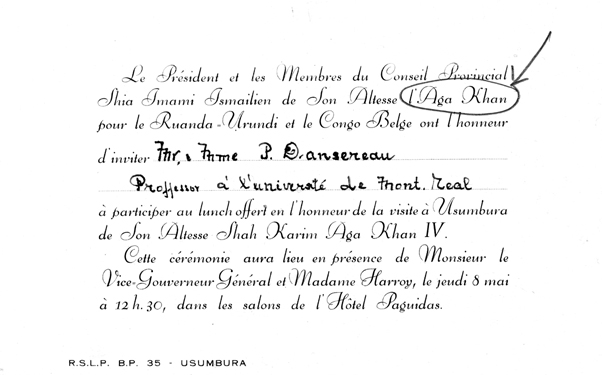 Le Président et les Membres du Conseil Provincial
Shia Imami Ismailien de Son Altesse l'Aga Khan
pour le Ruanda-Urundi et le Congo Belge ont l'honneur
d'inviter Mr, & Mme P. Dansereau
Proffessor à l'université de Mont. Real
à participer au lunch offert en l'honneur de la visite à Usumbura
de Son Altesse Shah Karim Aga Khan IV.
Cette cérémonie aura lieu en présence de Monsieur le
Vice-Gouverneur Général et Madame Harroy, le jeudi 8 mai
à 12 h. 30, dans les salons de l'Hôtel Paguidas.
R.S.L.P. B.P. 35 - USUMBURA